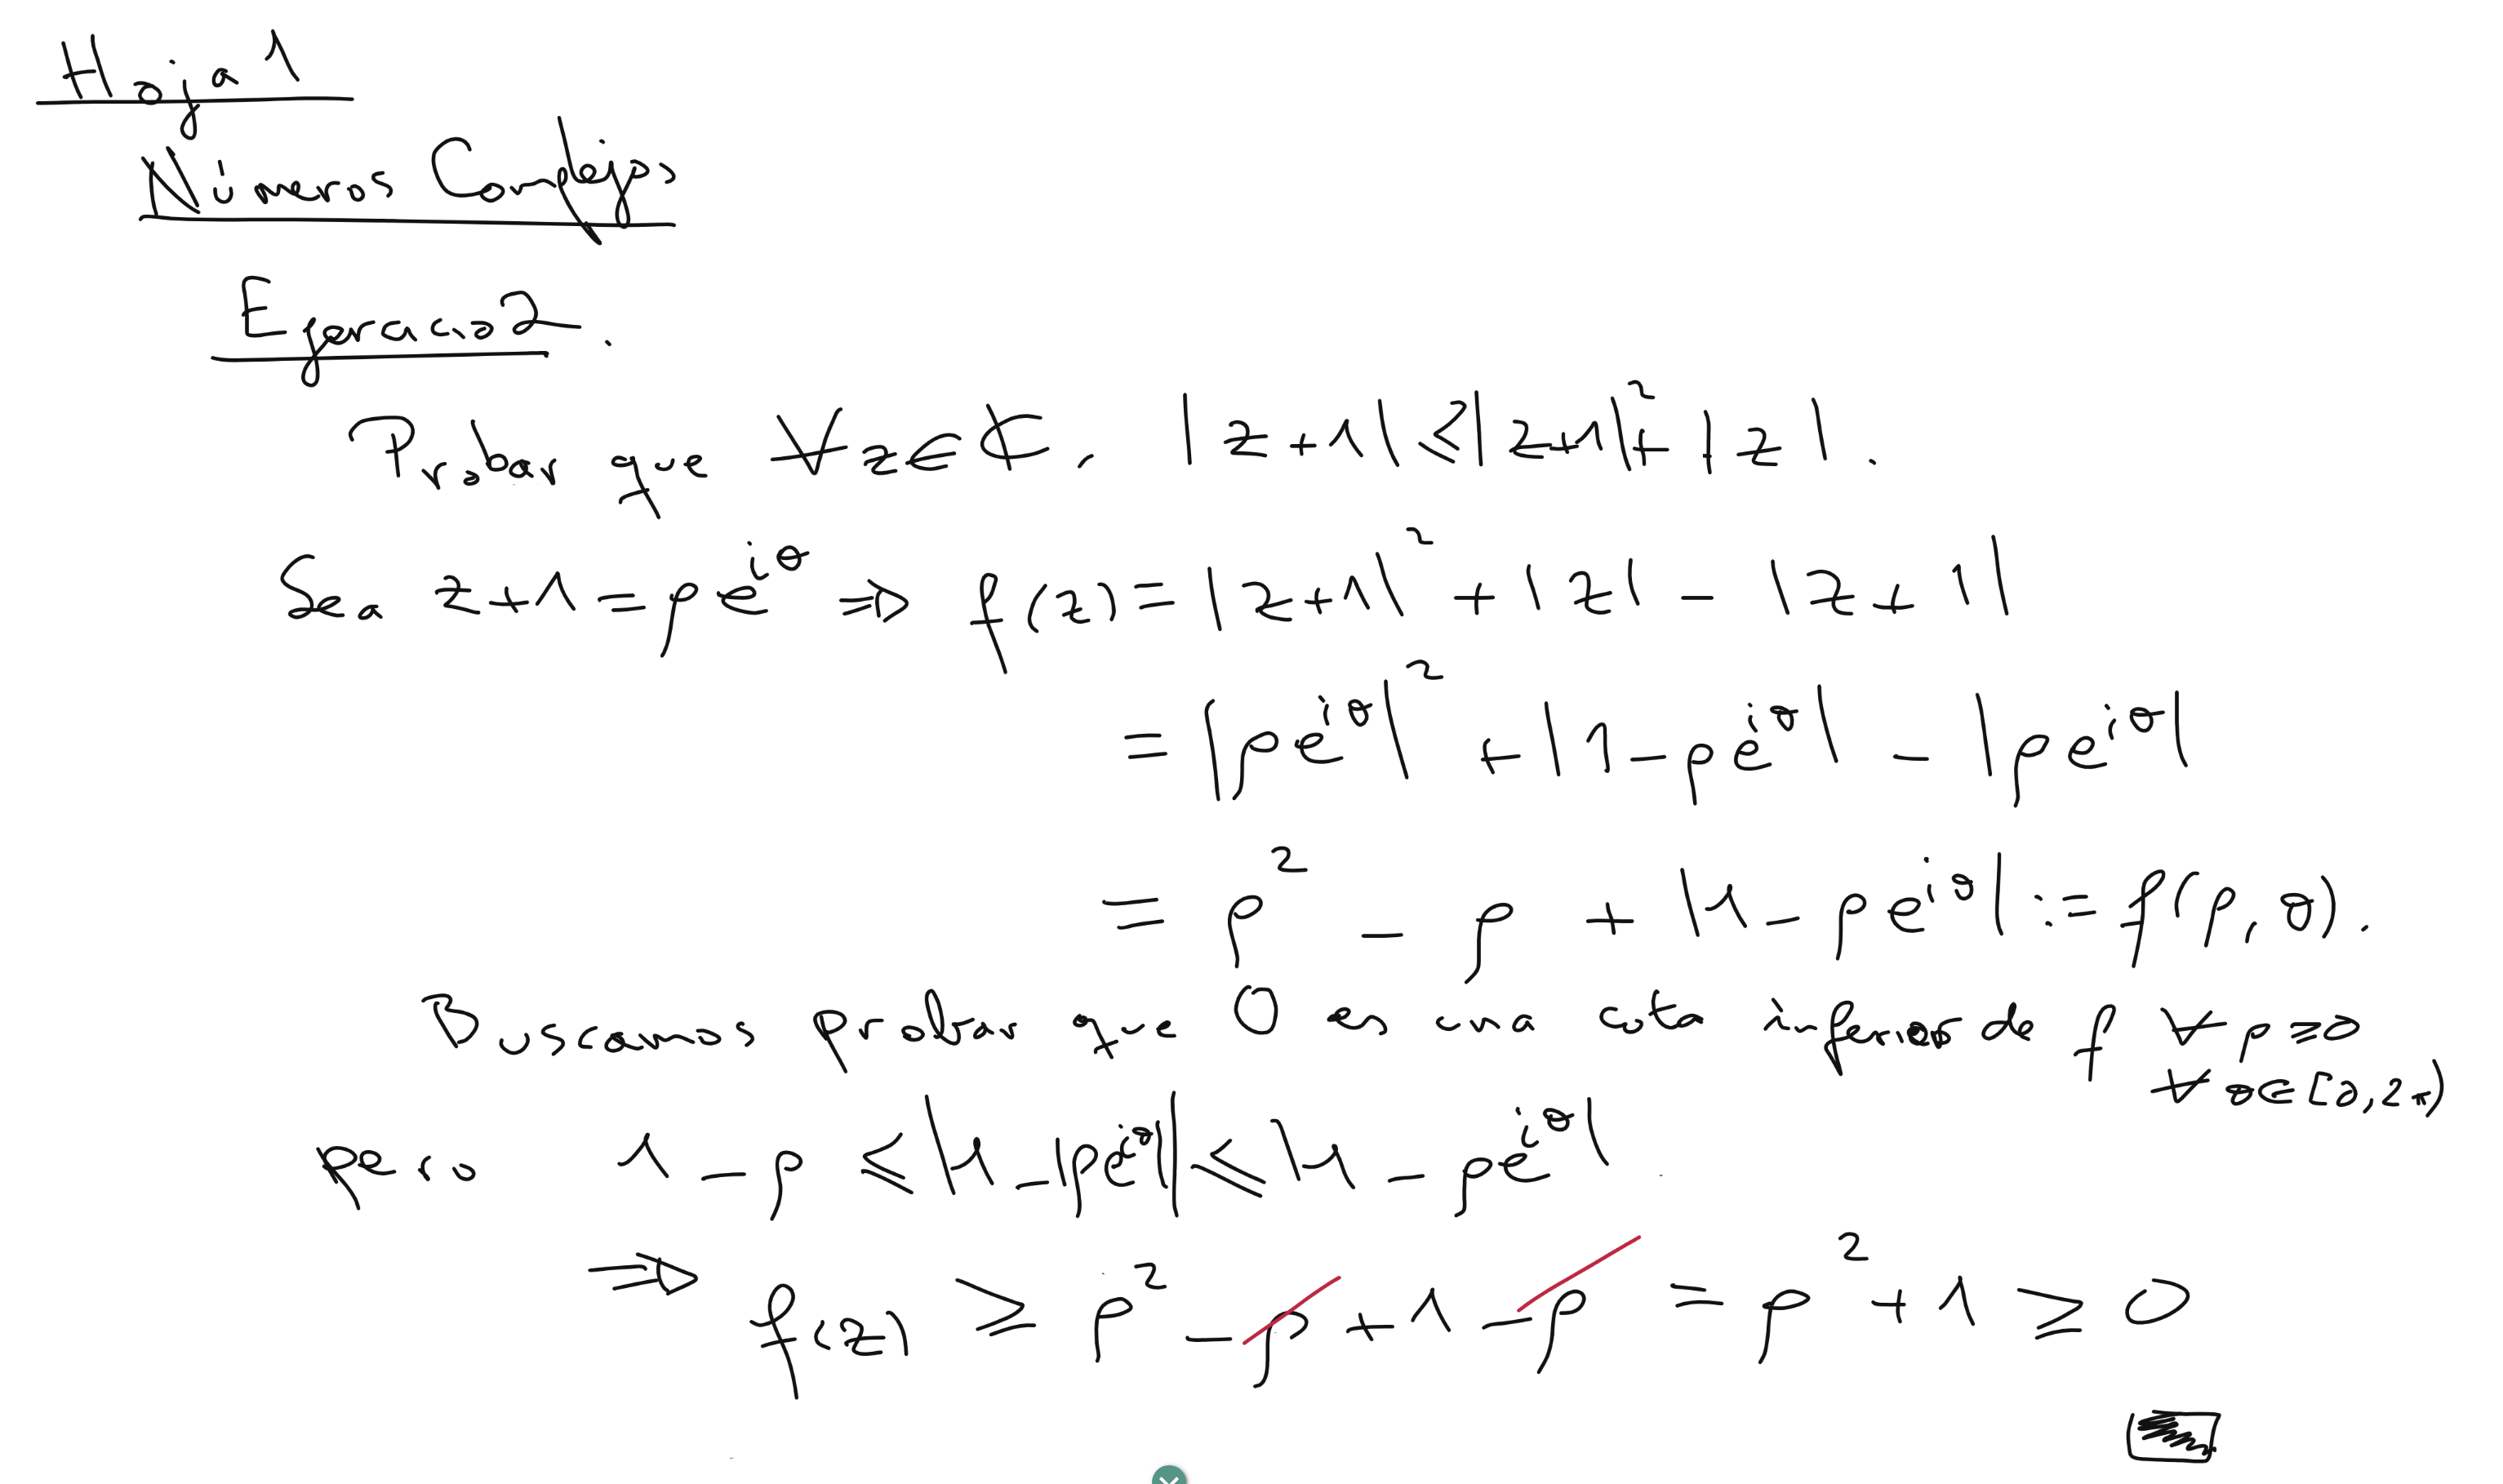 Hoja 1
Números Complejos
Ejercicio 2.
Probar que ∀ z ∈ ℂ, |z+1| ≤ |z+1|² + |z|.
Sea z+1 = ρe^{iθ} ⇒ f(z) = |z+1|² + |z| - |z+1|
= |ρe^{iθ}|² + |1 - ρe^{iθ}| - |ρe^{iθ}|
= ρ² - ρ + |1 - ρe^{iθ}| := f(ρ, θ).
Buscamos probar que 0 es una cota inferior de f ∀ ρ ≥ 0
∀ θ ∈ [0, 2π)
pero 1 - ρ ≤ |1 - |ρe^{iθ}|| ≤ |1 - ρe^{iθ}|
⇒ f(z) ≥ ρ² - ρ + 1 - ρ = ρ² + 1 ≥ 0